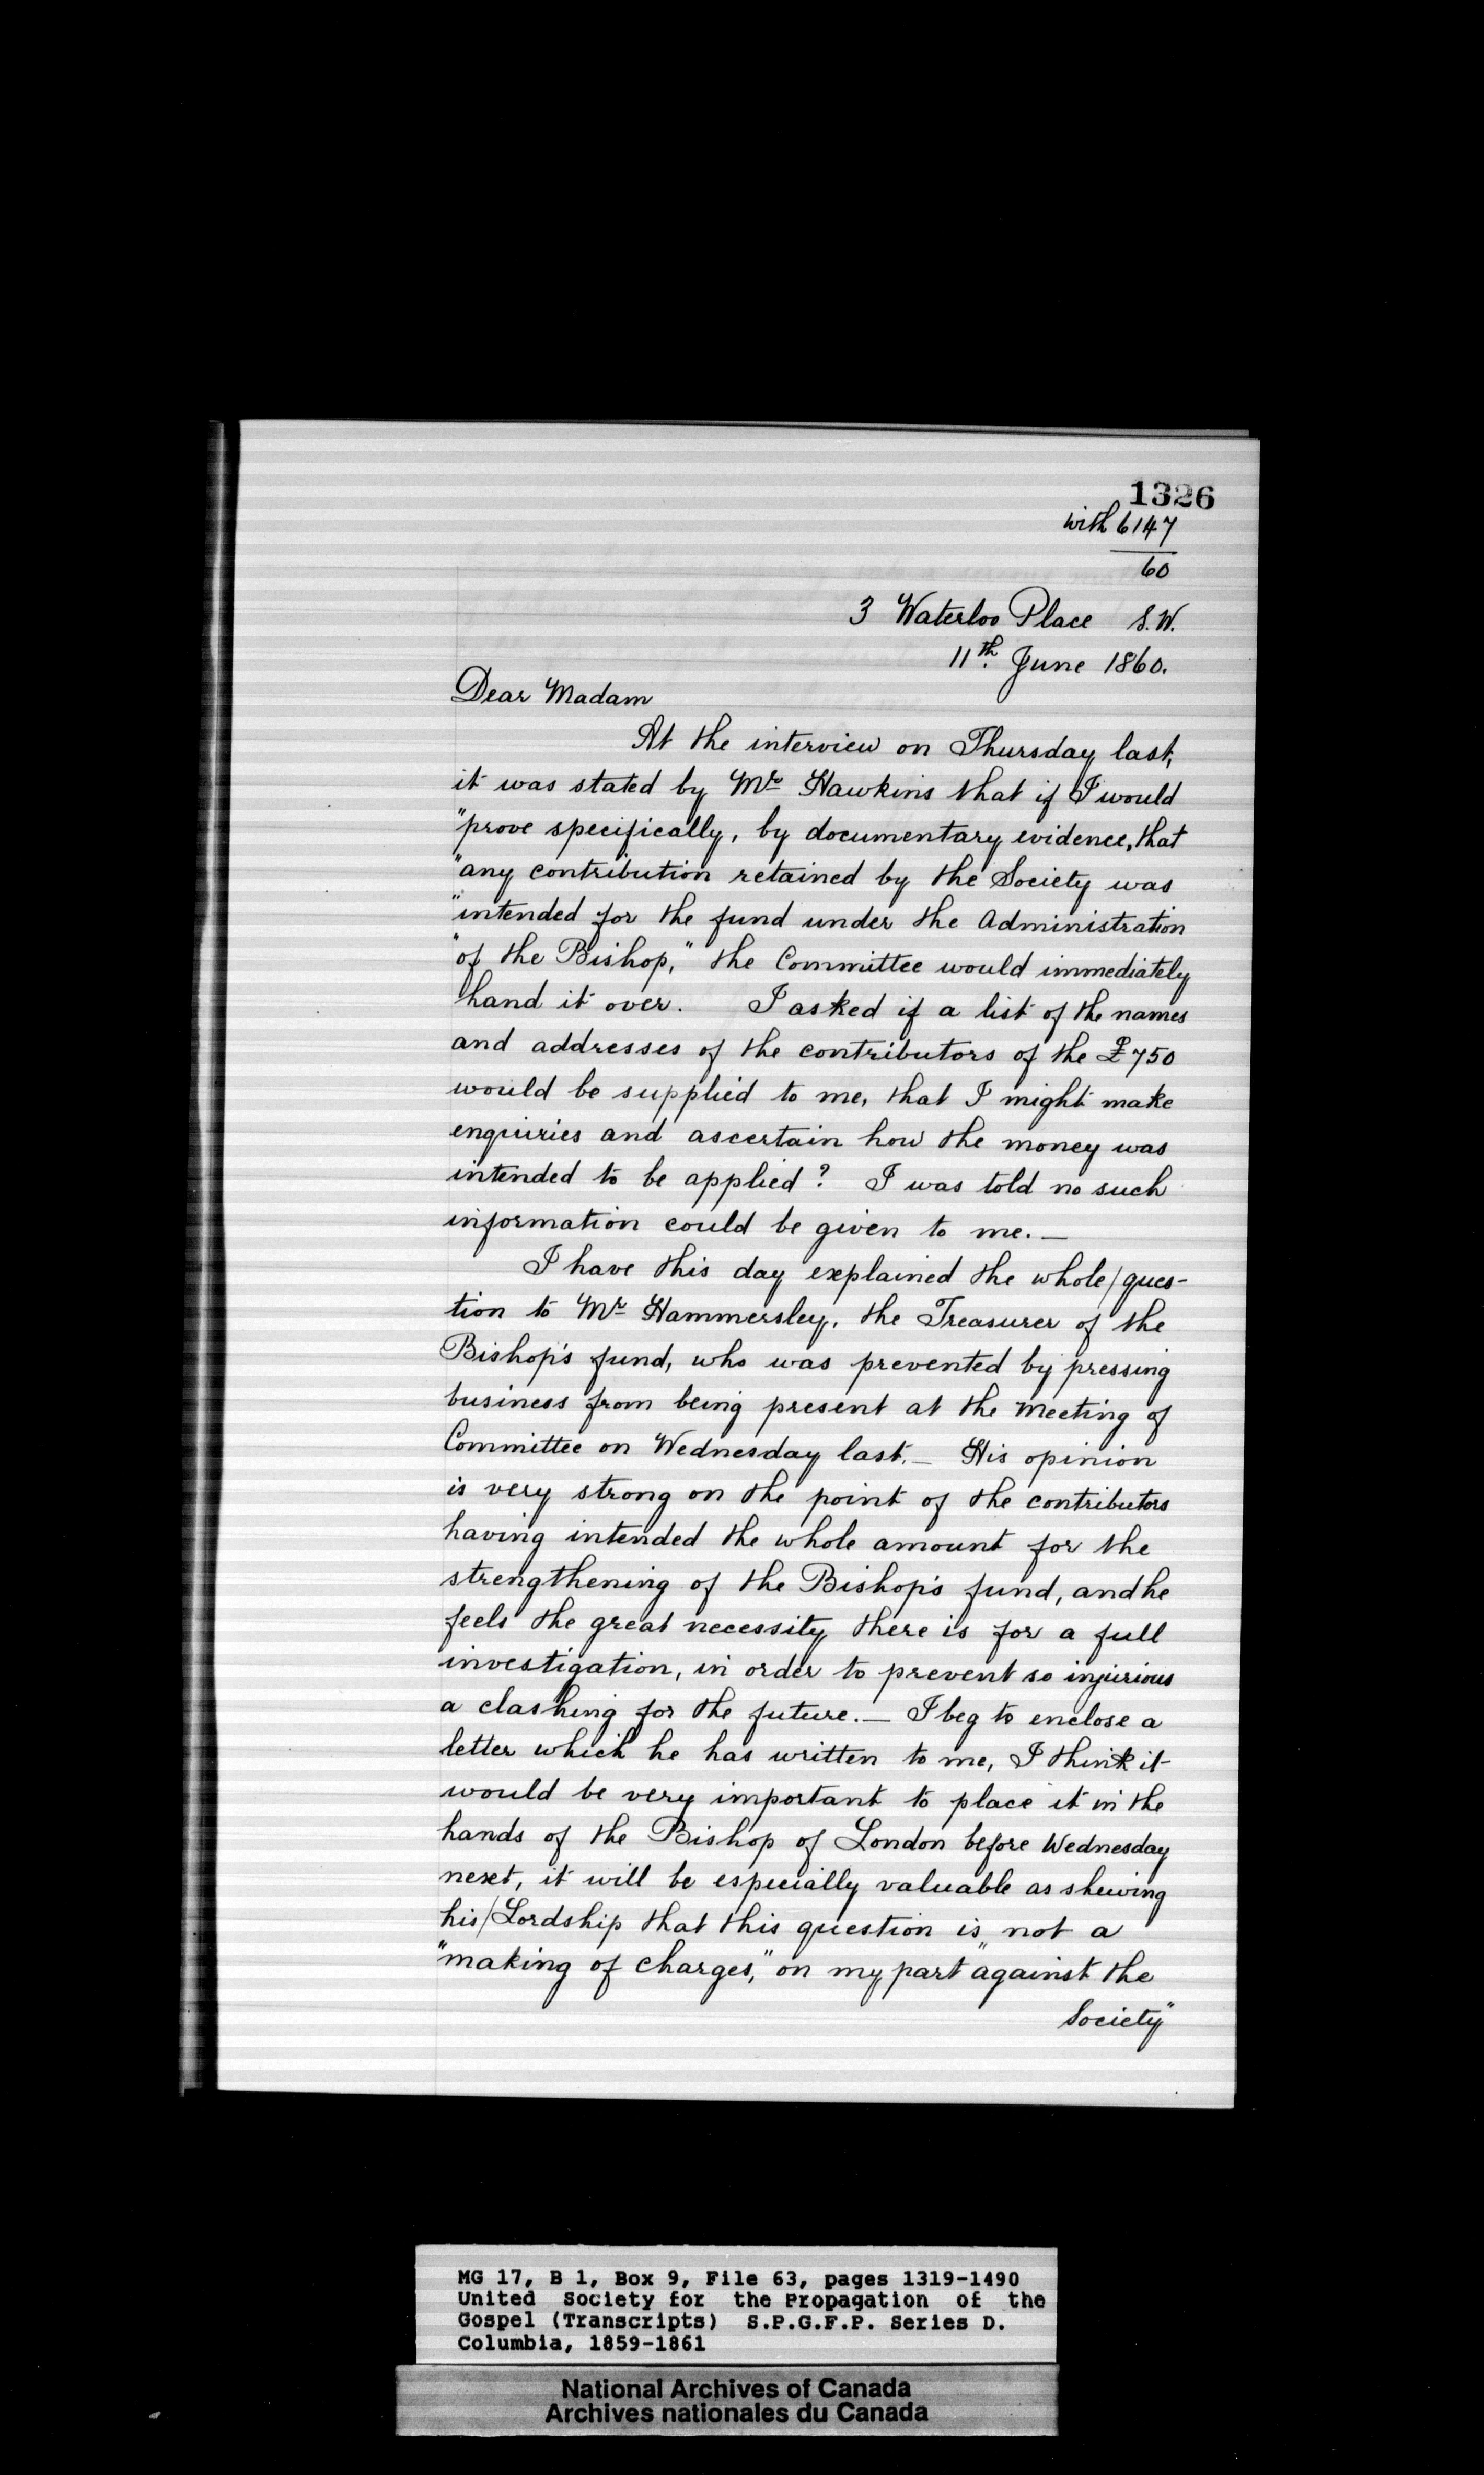 1326
with 6147
60
3 Waterloo Place S.W.
11th. June 1860.
Dear Madam
At the interview on Thursday last,
it was stated by Mr Hawkins that if I would
"prove specifically, by documentary evidence, that
"any contribution retained by the Society was
"intended for the fund under the Administration
"of the Bishop," the Committee would immediately
hand it over. I asked if a list of the names
and addresses of the contributors of the £750
would be supplied to me, that I might make
enquiries and ascertain how the money was
intended to be applied? I was told no such
information could be given to me. —
I have this day explained the whole/ques-
tion to Mr Hammersley, the Treasurer of the
Bishop's fund, who was prevented by pressing
business from being present at the Meeting of
Committee on Wednesday last. — His opinion
is very strong on the point of the contributors
having intended the whole amount for the
strengthening of the Bishop's fund, and he
feels the great necessity there is for a full
investigation, in order to prevent so injurious
a clashing for the future. — I beg to enclose a
letter which he has written to me, I think it
would be very important to place it in the
hands of the Bishop of London before Wednesday
next, it will be especially valuable as shewing
his/Lordship that this question is not a
"making of charges," on my part "against the
Society"
MG 17, B 1, Box 9, File 63, pages 1319-1490
United Society for the Propagation of the
Gospel (Transcripts) S.P.G.F.P. Series D.
Columbia, 1859-1861
National Archives of Canada
Archives nationales du Canada